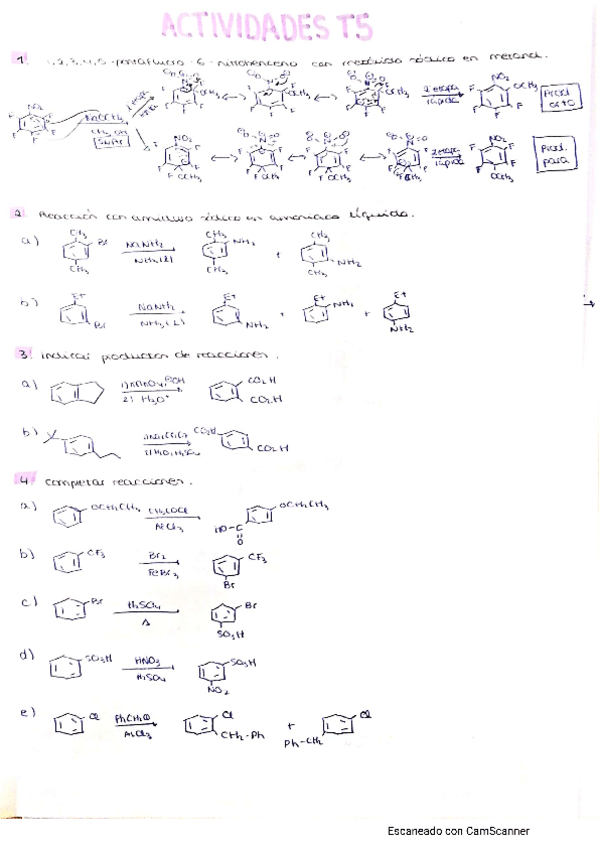 ACTIVIDADES T5
1. 1,2,3,4,5 - pentafluoro - 6 - nitrobenceno con metóxido sódico en metanol.
NO₂ F F F F F NaOCH₃ CH₃OH SNAr
2 etapa rápida NO₂ OCH₃ F F F F Prod. orto
2 etapa rápida NO₂ F F F F OCH₃ Prod. para
2. Reacción con amiduro sódico en amoniaco líquido.
a) CH₃ Br CH₃ NaNH₂ NH₃(l) CH₃ NH₂ CH₃ + CH₃ NH₂ CH₃
b) Et Br NaNH₂ NH₃(l) Et NH₂ + Et NH₂ + Et NH₂
3. Indicar productos de reacciones.
a) 2) H₃O⁺ CO₂H CO₂H
b) CO₂H CO₂H
4. Completar reacciones.
a) OCH₂CH₃ AlCl₃ OCH₂CH₃
b) CF₃ Br₂ FeBr₃ CF₃ Br
c) Br H₂SO₄ Δ Br SO₃H
d) SO₃H HNO₃ H₂SO₄ SO₃H NO₂
e) Cl PhCH₂Cl AlCl₃ Cl CH₂-Ph + Cl Ph-CH₂
Escaneado con CamScanner